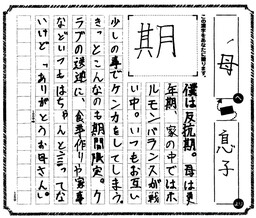 母
へ
息子
より
この漢字をあなたに贈ります。
期
僕は反抗期。母は更
年期、家の中ではホ
ルモンバランスが戦
い中。いつもお互い
少しの事でケンカをしてしまう。
きっとこんなのも期間限定。ク
ラブの送迎に、食事作りや家事
などいつもはちゃんと言ってな
いけど「ありがとうお母さん。」